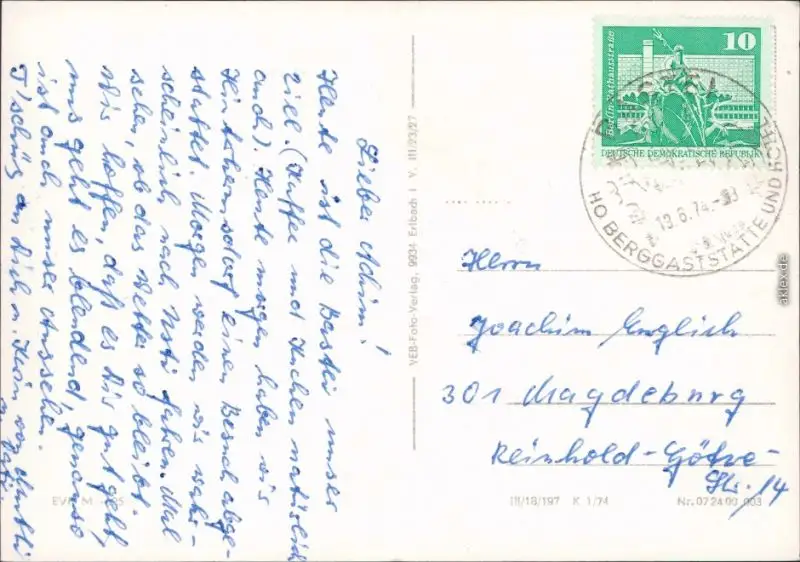 Lieber Achim!
Heute ist die Bastei unser
Ziel. (Kaffee und Kuchen natürlich
auch). Heute morgen haben wir
Hinterhermsdorf einen Besuch abge-
stattet. Morgen werden wir wahr-
scheinlich nach Usti fahren. Mal
sehen, ob das Wetter so bleibt.
Wir hoffen, daß es Dir gut geht,
uns geht es blendend, genauso
ist auch unser Aussehen.
Tschüß an Dich u. von Mutti
u. Vati.
VEB-Foto-Verlag, 9934 Erlbach i V. III/23/27
10
Berlin, Rathausstraße
DEUTSCHE DEMOKRATISCHE REPUBLIK
HO BERGGASTSTÄTTE UND HOTEL
BASTEI
13.6.74
Herrn
Joachim Englich
301 Magdeburg
Reinhold-Götze-
Str. 14
EVP M
III/18/197 K 1/74 Nr. 07 24 09 003
aklex.de